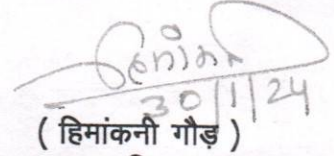 30/1/24
( हिमांकनी गौड़ )